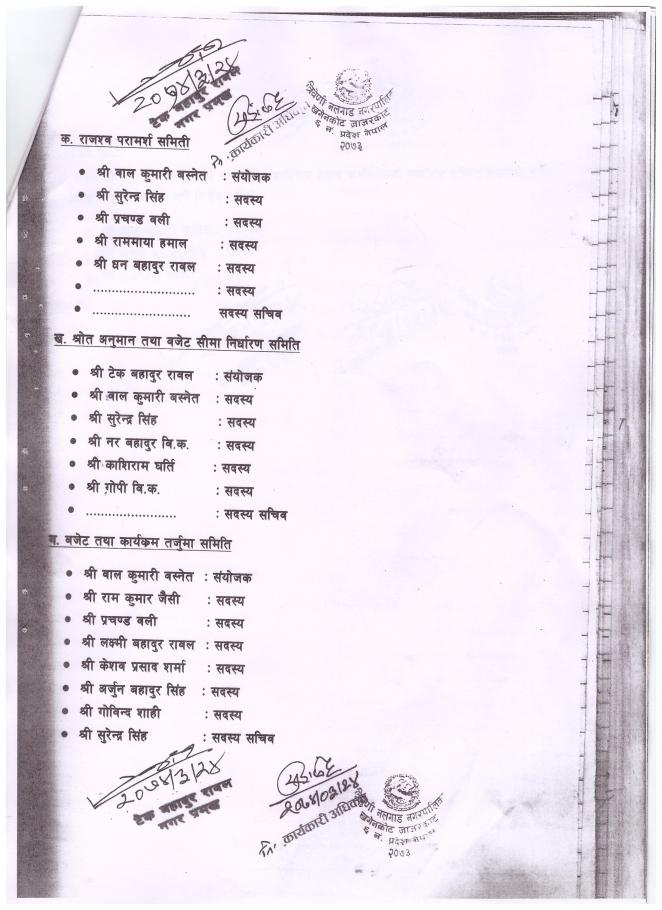 २०७४/३/२४
टेक बहादुर रावल
नगर प्रमुख
कार्यकारी अधिकृत
त्रिवेणी नलगाड नगरपालिका
खगेनकोट जाजरकोट
६ नं. प्रदेश नेपाल
२०७३
क. राजश्व परामर्श समिती
• श्री बाल कुमारी बस्नेत : संयोजक
• श्री सुरेन्द्र सिंह : सदस्य
• श्री प्रचण्ड वली : सदस्य
• श्री राममाया हमाल : सदस्य
• श्री धन बहादुर रावल : सदस्य
• ............................ : सदस्य
• .......................... सदस्य सचिव
ख. श्रोत अनुमान तथा बजेट सीमा निर्धारण समिति
• श्री टेक बहादुर रावल : संयोजक
• श्री बाल कुमारी बस्नेत : सदस्य
• श्री सुरेन्द्र सिंह : सदस्य
• श्री नर बहादुर बि.क. : सदस्य
• श्री काशिराम घर्ति : सदस्य
• श्री गोपी बि.क. : सदस्य
• ........................ : सदस्य सचिव
ग. बजेट तथा कार्यक्रम तर्जुमा समिति
• श्री बाल कुमारी बस्नेत : संयोजक
• श्री राम कुमार जैसी : सदस्य
• श्री प्रचण्ड वली : सदस्य
• श्री लक्ष्मी बहादुर रावल : सदस्य
• श्री केशव प्रसाद शर्मा : सदस्य
• श्री अर्जुन बहादुर सिंह : सदस्य
• श्री गोविन्द शाही : सदस्य
• श्री सुरेन्द्र सिंह : सदस्य सचिव
२०७४/३/२४
टेक बहादुर रावल
नगर प्रमुख
२०७४/०३/२४
नि. कार्यकारी अधिकृत
त्रिवेणी नलगाड नगरपालिका
खगेनकोट जाजरकोट
६ नं. प्रदेश नेपाल
२०७३